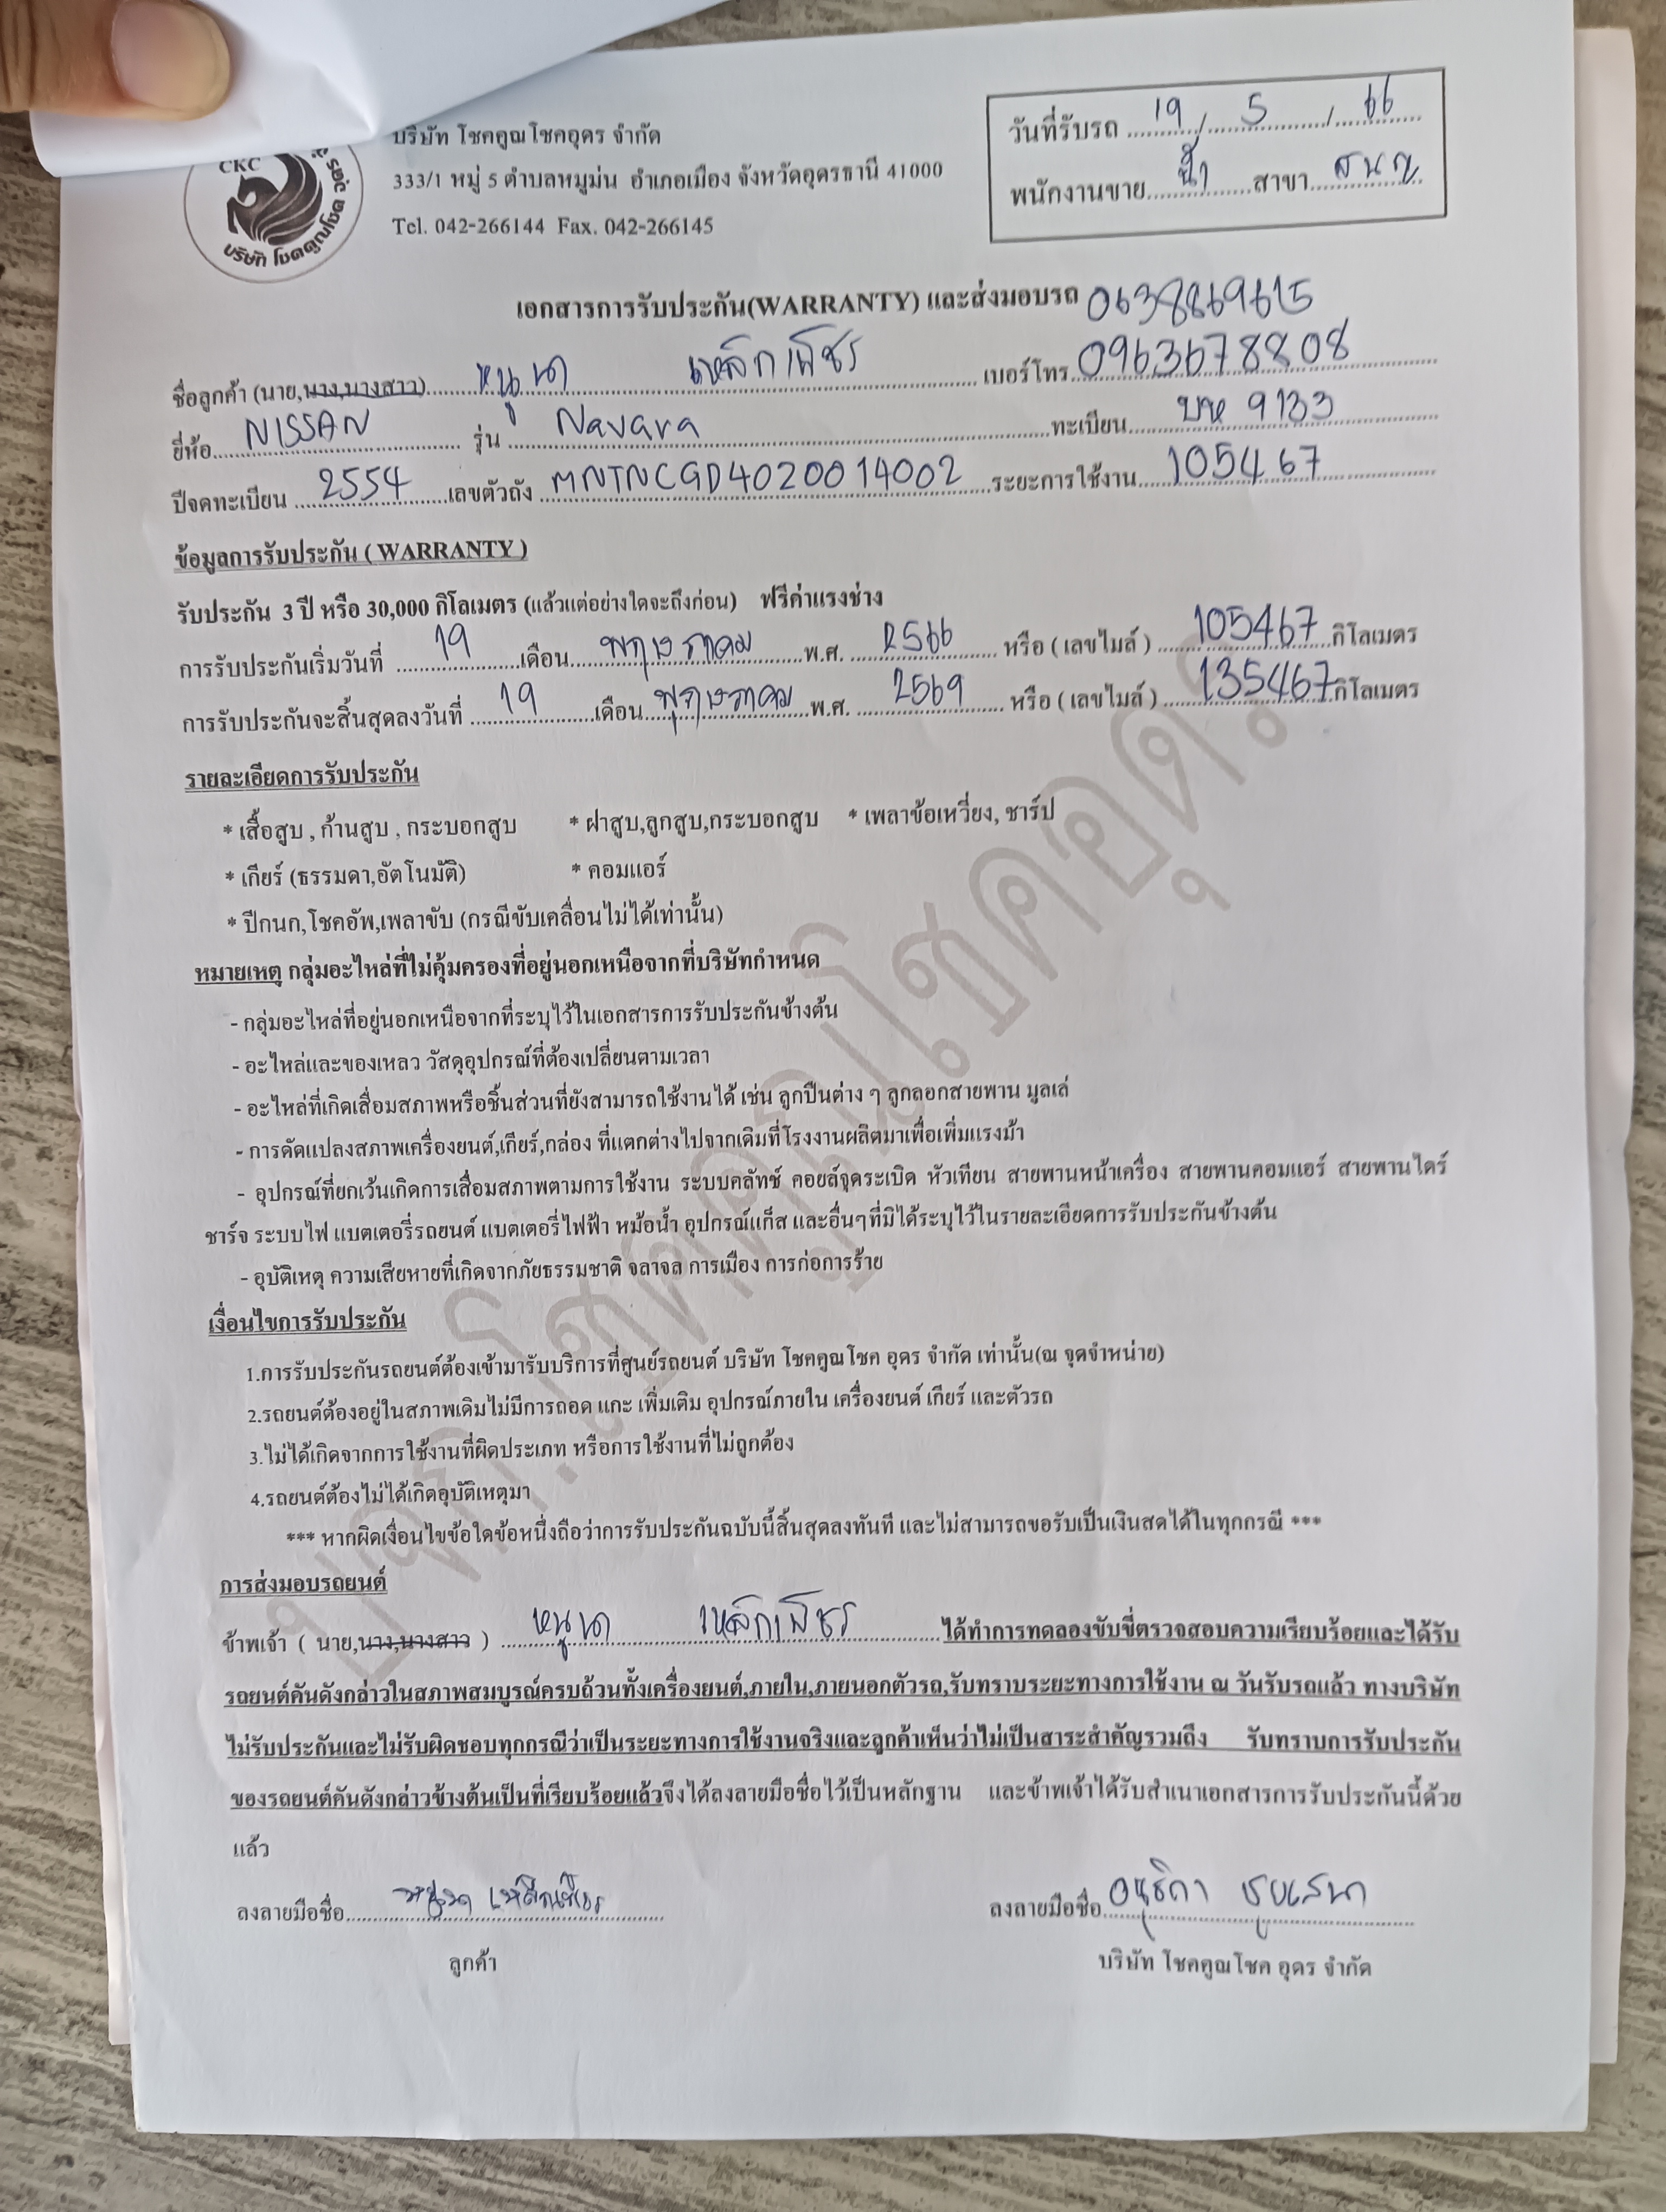 CKC
บริษัท โชคคูณโชค อุดร
บริษัท โชคคูณโชคอุดร จำกัด
333/1 หมู่ 5 ตำบลหมูม่น อำเภอเมือง จังหวัดอุดรธานี 41000
Tel. 042-266144 Fax. 042-266145
วันที่รับรถ 19 / 5 / 66
พนักงานขาย น้ำ สาขา สนญ
เอกสารการรับประกัน(WARRANTY) และส่งมอบรถ 0638869615
ชื่อลูกค้า (นาย,นาง,นางสาว) หนูนา เหล็กเพ็ชร เบอร์โทร 0963678808
ยี่ห้อ NISSAN รุ่น Navara ทะเบียน บห 9133
ปีจดทะเบียน 2554 เลขตัวถัง MNTNCGD4020014002 ระยะการใช้งาน 105467
ข้อมูลการรับประกัน ( WARRANTY )
รับประกัน 3 ปี หรือ 30,000 กิโลเมตร (แล้วแต่อย่างใดจะถึงก่อน) ฟรีค่าแรงช่าง
การรับประกันเริ่มวันที่ 19 เดือน พฤษภาคม พ.ศ. 2566 หรือ ( เลขไมล์ ) 105467 กิโลเมตร
การรับประกันจะสิ้นสุดลงวันที่ 19 เดือน พฤษภาคม พ.ศ. 2569 หรือ ( เลขไมล์ ) 135467 กิโลเมตร
รายละเอียดการรับประกัน
* เสื้อสูบ , ก้านสูบ , กระบอกสูบ * ฝาสูบ,ลูกสูบ,กระบอกสูบ * เพลาข้อเหวี่ยง, ชาร์ป
* เกียร์ (ธรรมดา,อัตโนมัติ) * คอมแอร์
* ปีกนก,โชคอัพ,เพลาขับ (กรณีขับเคลื่อนไม่ได้เท่านั้น)
หมายเหตุ กลุ่มอะไหล่ที่ไม่คุ้มครองที่อยู่นอกเหนือจากที่บริษัทกำหนด
- กลุ่มอะไหล่ที่อยู่นอกเหนือจากที่ระบุไว้ในเอกสารการรับประกันข้างต้น
- อะไหล่และของเหลว วัสดุอุปกรณ์ที่ต้องเปลี่ยนตามเวลา
- อะไหล่ที่เกิดเสื่อมสภาพหรือชิ้นส่วนที่ยังสามารถใช้งานได้ เช่น ลูกปืนต่าง ๆ ลูกลอกสายพาน มูลเล่
- การดัดแปลงสภาพเครื่องยนต์,เกียร์,กล่อง ที่แตกต่างไปจากเดิมที่โรงงานผลิตมาเพื่อเพิ่มแรงม้า
- อุปกรณ์ที่ยกเว้นเกิดการเสื่อมสภาพตามการใช้งาน ระบบคลัทช์ คอยล์จุดระเบิด หัวเทียน สายพานหน้าเครื่อง สายพานคอมแอร์ สายพานไดร์
ชาร์จ ระบบไฟ แบตเตอรี่รถยนต์ แบตเตอรี่ไฟฟ้า หม้อน้ำ อุปกรณ์แก็ส และอื่นๆที่มิได้ระบุไว้ในรายละเอียดการรับประกันข้างต้น
- อุบัติเหตุ ความเสียหายที่เกิดจากภัยธรรมชาติ จลาจล การเมือง การก่อการร้าย
เงื่อนไขการรับประกัน
1.การรับประกันรถยนต์ต้องเข้ามารับบริการที่ศูนย์รถยนต์ บริษัท โชคคูณโชค อุดร จำกัด เท่านั้น(ณ จุดจำหน่าย)
2.รถยนต์ต้องอยู่ในสภาพเดิมไม่มีการถอด แกะ เพิ่มเติม อุปกรณ์ภายใน เครื่องยนต์ เกียร์ และตัวรถ
3.ไม่ได้เกิดจากการใช้งานที่ผิดประเภท หรือการใช้งานที่ไม่ถูกต้อง
4.รถยนต์ต้องไม่ได้เกิดอุบัติเหตุมา
*** หากผิดเงื่อนไขข้อใดข้อหนึ่งถือว่าการรับประกันฉบับนี้สิ้นสุดลงทันที และไม่สามารถขอรับเป็นเงินสดได้ในทุกกรณี ***
การส่งมอบรถยนต์
ข้าพเจ้า ( นาย,นาง,นางสาว ) หนูนา เหล็กเพ็ชร ได้ทำการทดลองขับขี่ตรวจสอบความเรียบร้อยและได้รับ
รถยนต์คันดังกล่าวในสภาพสมบูรณ์ครบถ้วนทั้งเครื่องยนต์,ภายใน,ภายนอกตัวรถ,รับทราบระยะทางการใช้งาน ณ วันรับรถแล้ว ทางบริษัท
ไม่รับประกันและไม่รับผิดชอบทุกกรณีว่าเป็นระยะทางการใช้งานจริงและลูกค้าเห็นว่าไม่เป็นสาระสำคัญรวมถึง รับทราบการรับประกัน
ของรถยนต์คันดังกล่าวข้างต้นเป็นที่เรียบร้อยแล้วจึงได้ลงลายมือชื่อไว้เป็นหลักฐาน และข้าพเจ้าได้รับสำเนาเอกสารการรับประกันนี้ด้วย
แล้ว
ลงลายมือชื่อ หนูนา เหล็กเพ็ชร ลงลายมือชื่อ
ลูกค้า บริษัท โชคคูณโชค อุดร จำกัด